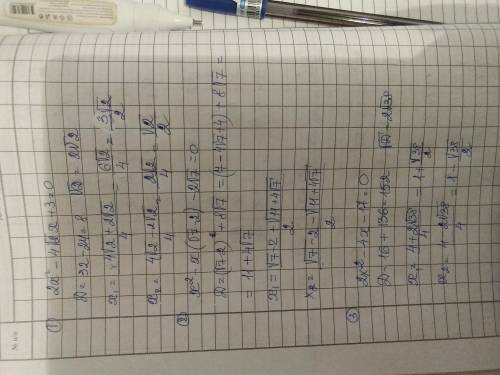 ① 2x² - 4√2x + 3 = 0
D = 32 - 24 = 8 √D = 2√2
x₁ = (4√2 + 2√2)/4 = 6√2/4 = 3√2/2
x₂ = (4√2 - 2√2)/4 = 2√2/4 = √2/2
② x² - x(√7 - 2) - 2√7 = 0
D = (√7-2)² + 8√7 = (7 - 4√7 + 4) + 8√7 =
= 11 + 4√7
x₁ = (√7 - 2 + √11 + 4√7)/2
x₂ = (√7 - 2 - √11 + 4√7)/2
③ 2x² - 4x - 17 = 0
D = 16 + 136 = 152 √D = 2√38
x₁ = (4 + 2√38)/4 = 1 + √38/2
x₂ = (4 - 2√38)/4 = 1 - √38/2